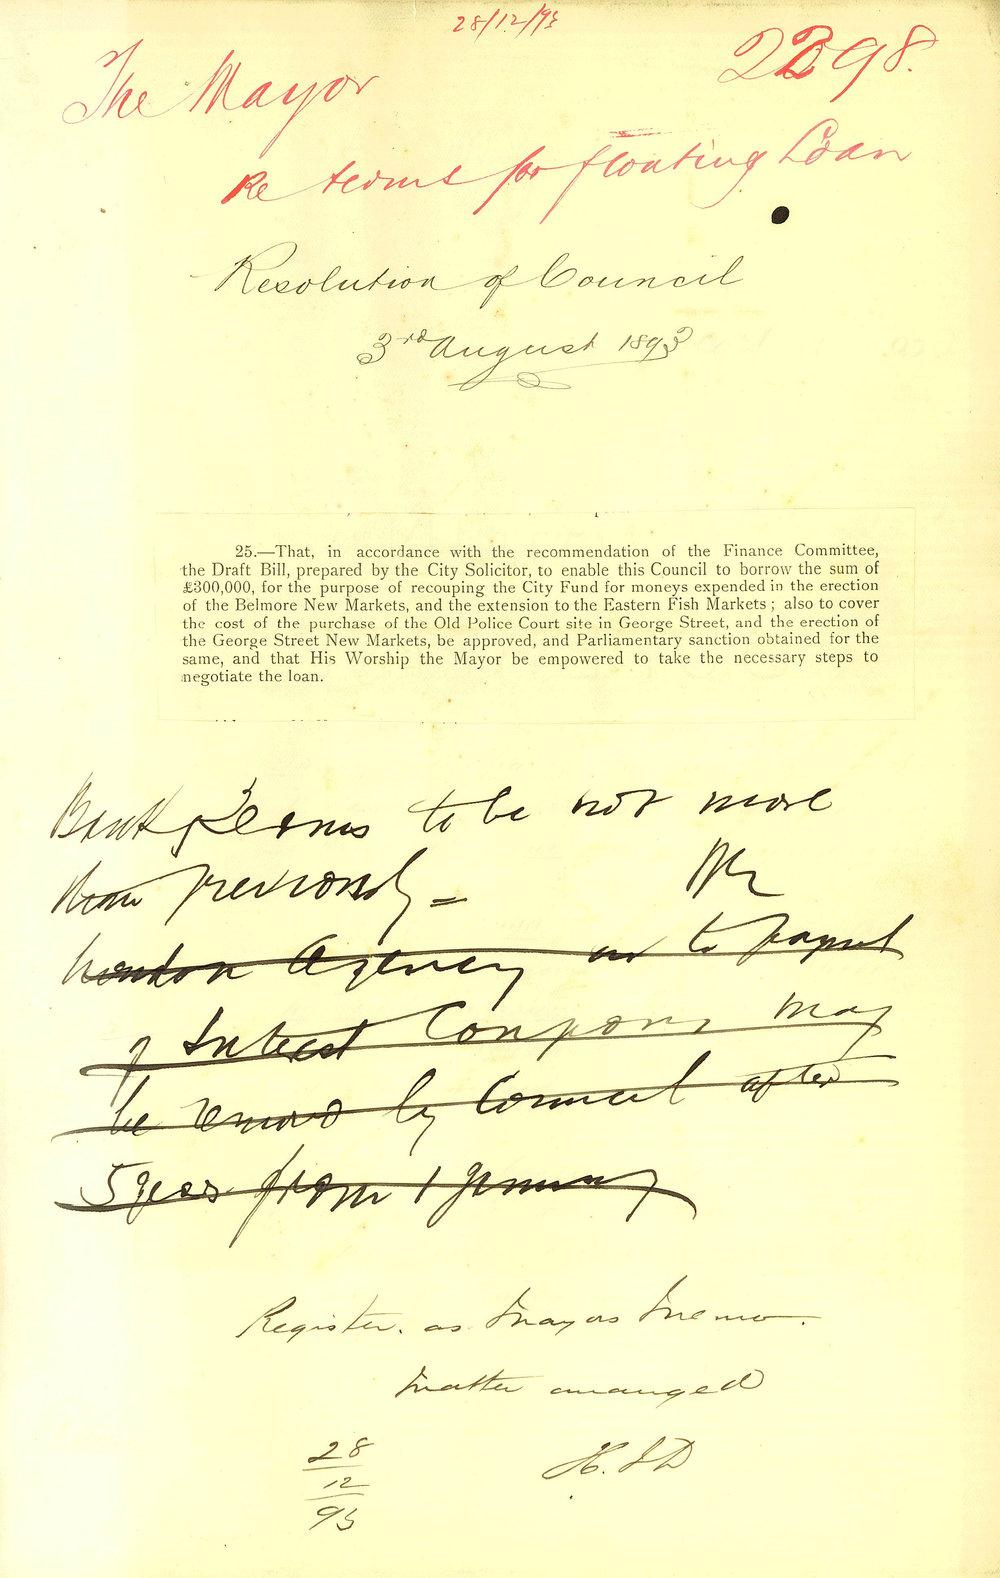 28/12/93
The Mayor
2298.
Re terms for floating Loan
Resolution of Council
3rd August 1893
25.—That, in accordance with the recommendation of the Finance Committee,
the Draft Bill, prepared by the City Solicitor, to enable this Council to borrow the sum of
£300,000, for the purpose of recouping the City Fund for moneys expended in the erection
of the Belmore New Markets, and the extension to the Eastern Fish Markets ; also to cover
the cost of the purchase of the Old Police Court site in George Street, and the erection of
the George Street New Markets, be approved, and Parliamentary sanction obtained for the
same, and that His Worship the Mayor be empowered to take the necessary steps to
negotiate the loan.
Bank Terms to be not more
than previously =
London Agency as to payment
of Interest Coupons may
be removed by Council after
5 years from 1 January
Register. as Mayors Memo.
Matter arranged
28
12
93
H. J D